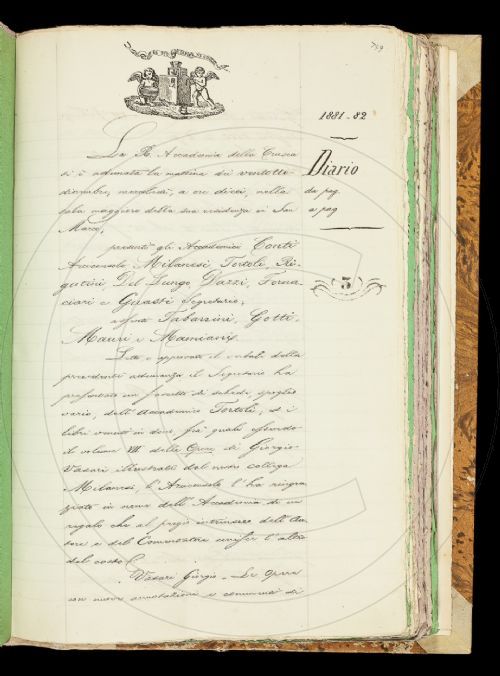 1881-82
Diario
da pag.
a pag
3
La R. Accademia della Crusca
si è adunata la mattina di ventotto
dicembre, mercoledì, a ore dieci, nella
sala maggiore della sua residenza in San
Marco;
presenti gli Accademici Conti
Arciconsolo, Milanesi, Tortoli, Ri-
gutini, Del Lungo, Dazzi, Forna-
ciari e Guasti Segretario;
Tabarrini, Gotti,
Mauri e Mamiani.
Letto e approvato il verbale della
precedente adunanza il Segretario ha
presentato un fascetto di schede, spoglio
vario, dell'Accademico Tortoli; e i
libri venuti in dono, fra' quali essendo
il volume VII delle Opere di Giorgio
Vasari illustrate dal nostro collega
Milanesi, l'Arciconsolo l'ha ringra-
ziato in nome dell'Accademia di un
regalo che al pregio intrinseco dell'Au-
tore e del Commentatore unisce l'altro
del costo.
Vasari Giorgio - Le Opere
con nuove annotazioni e commenti di